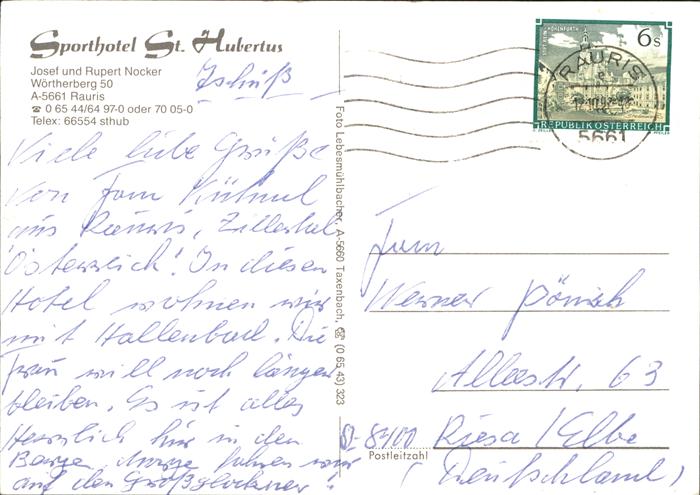 Sporthotel St. Hubertus
Josef und Rupert Nocker
Wörtherberg 50
A-5661 Rauris
☎ 0 65 44/64 97-0 oder 70 05-0
Telex: 66554 sthub
Tschüß
Viele liebe Grüße
von Fam Kühnel
aus Rauris, Zillertal
Österreich! In diesen
Hotel wohnen wir
mit Hallenbad. Die
Frau will noch länger
bleiben. Es ist alles
Herrlich hier in den
Berge. fahren wir
auf den Großglockner!
Foto Lebesmühlbacher, A-5660 Taxenbach, ☎ (0 65 43) 323
STIFT REIN-HOHENFURTH
6 s
REPUBLIK ÖSTERREICH
RAURIS
5661
Fam
Werner
Alleestr. 63
D-8400 Riesa/Elbe
Postleitzahl
(Deutschland)